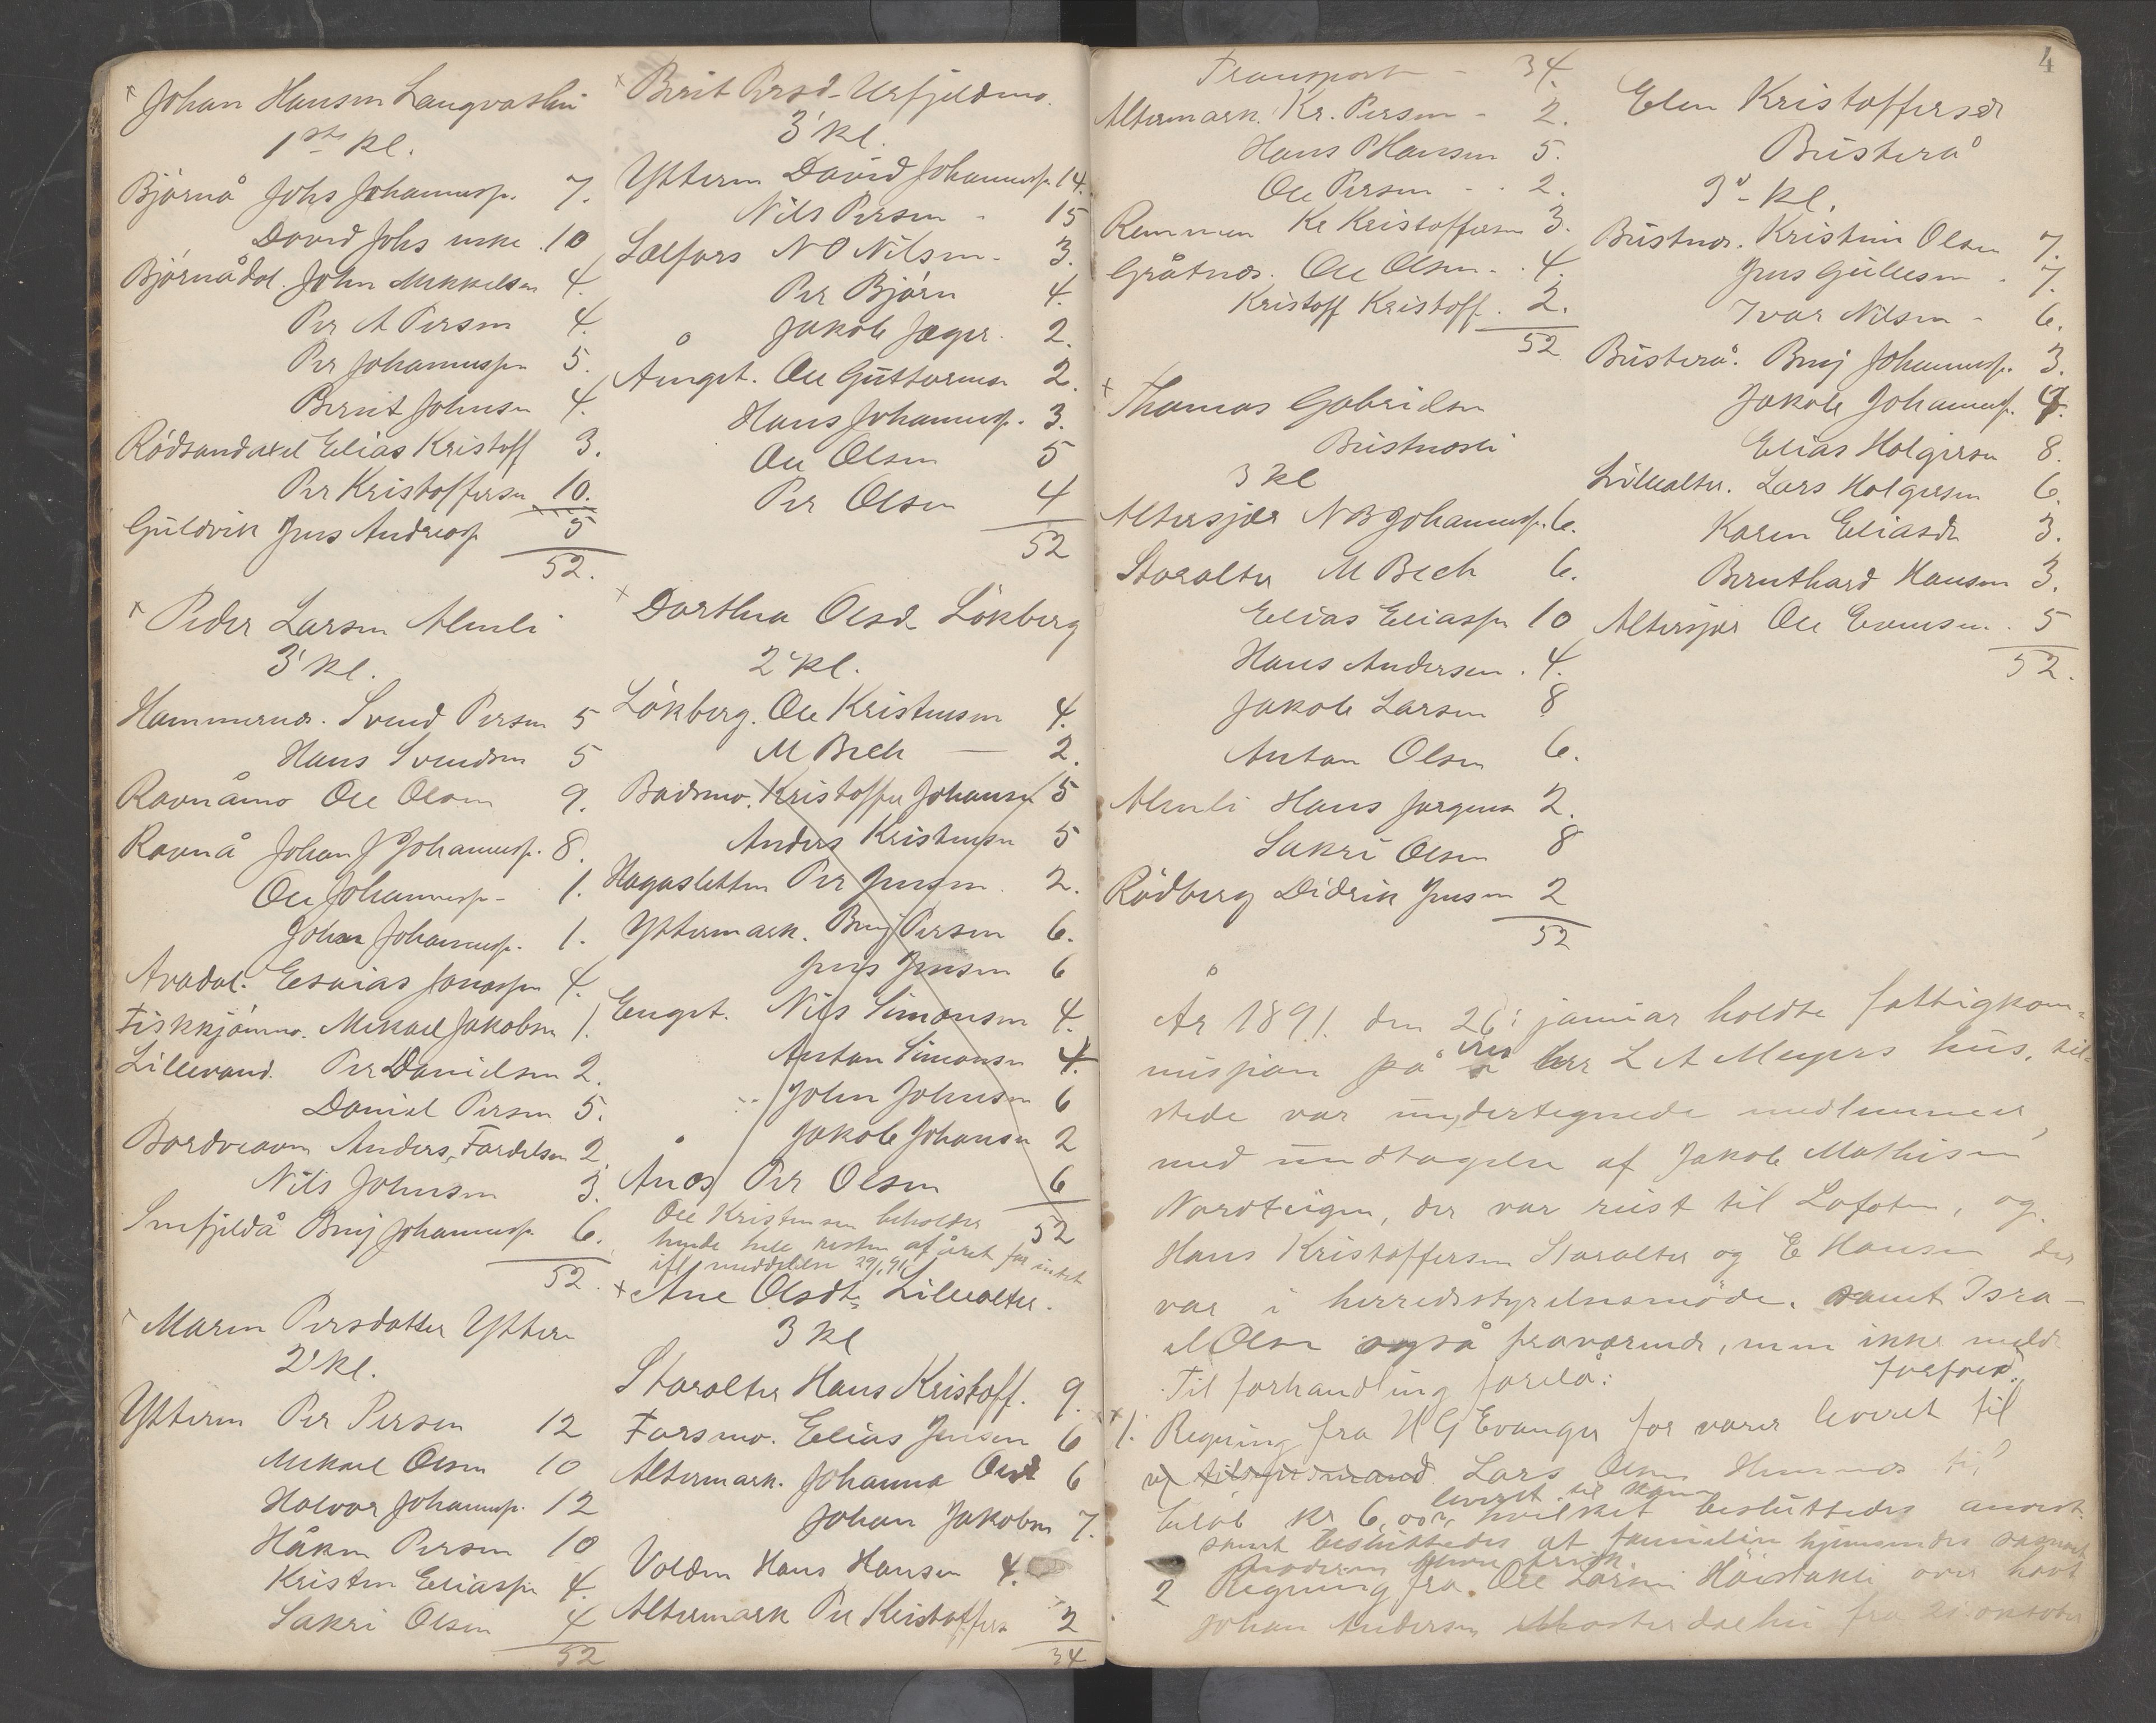 Johan Hansen Langvasli
1ste kl.
Bjørnå Johs Johannesp. 7.
David Johs 10
Bjørnådal. John Mikkelsen 4.
Per A Persen 4.
Per Johannessen 5.
Bernt Johnsen 4.
Rødsandaxel Elias Kristoff 3.
Per Kristoffersen 10.
Guldvik Jens Andreasp 5
52.
× Peder Larsen Almli
3' kl.
Hammernes. Svend Persen 5
Hans Svendsen 5
Ravnåmo Ole Olsen 9.
Ravnå Johan J Johannesp. 8.
Ole Johannesp - 1.
Johan Johannesp. 1.
Avadal. Esaias Jonassen 4.
Fiskkjønmo. Mikael Jakobsen 1.
Lillevand. Per Danielsen 2.
Daniel Persen 5.
Bordveavn Anders Fardelsen 2.
Nils Johnsen 3.
Snefjeldå Benj Johannesp. 6.
52.
Maren Persdatter Yttern
2' kl.
Ytteren Per Persen 12
Mikael Olsen 10
Halvor Johannesp. 12
Håkon Persen 10
Kristen Eliassen 4.
Sakri Olsen 4
52
× Berit Persd. Urfjeldmo.
3' kl.
Ytteren David Johannesp. 14.
Nils Persen - 15
Sælfors N O Nilsen - 3.
Per Bjørn 4.
Jakob Jæger. 2.
Ånget. Ole Guttormsen 2.
Hans Johannesp. 3.
Ole Olsen 5
Per Olsen 4
52
× Dorthea Olsd. Løkberg
2' kl.
Løkberg. Ole Kristensen 4.
M Bech — 2.
Badsmo. Kristoffer Johansen 5
Anders Kristensen 5
Hagasletten Per Jensen. 2.
Yttermark. Benj Persen 6.
Jens Jensen 6
Enget. Nils Simonsen 4.
Anton Simonsen 4.
John Johnsen 6
Jakob Johansen 2
Ånes Per Olsen 6
52
Ole Kristensen beholder
hende hele resten af året for intet
ifl meddelelse 29/1 91
× Ane Olsdtr Lillealter.
3 kl
Storalter Hans Kristoff. 9.
Forsmo. Elias Jensen 6
Altermark. Johanna Olsd 6
Johan Jakobsen 7.
Volden Hans Hansen 4.
Altermark Per Kristoffers 2
34
4
Transport - 34.
Altermark. Kr. Persen - 2.
Hans P Hansen 5.
Ole Persen - - 2.
Remmen Kr Kristoffersen 3.
Gråtnes. Ole Olsen - . 4.
Kristoff Kristoff. 2.
52
× Thomas Gabrielsen
Bustnesli
3 kl
Altersjær N B Johannesp. 6.
Storalter M Bech 6.
Elias Eliassen 10
Hans Andersen. 4.
Jakob Larsen 8
Anton Olsen 6.
Almli Hans Jørgensen 2.
Sakri Olsen 8
Rødberg Didrik Jensen 2
52
Elen Kristoffersdr
Busterå
3' kl.
Bustnes. Kristine Olsen 7.
Jens Gullesen . 7.
Ivar Nilsen - 6.
Busterå. Benj Johannesp. 3.
Jakob Johannesp. 4.
Elias Holgersen 8.
Lillealter. Lars Holgersen 6.
Karen Eliasdr 3.
Bernthard Hansen 3.
Altersjær Ole Evensen. 5
52.
År 1891 den 26: januar holdte fattigkom=
missjon på hos herr L A Meyers hus, til-
stede var undertegnede medlemmer,
med undtagelse af Jakob Mathisen
Nordteigen, der var reist til Lofoten, og
Hans Kristoffersen Storalter og E Hansen der
var i herredsstyrelsesmøde. samt Isra-
el Olsen også fraværende, men ikke meldt
forfald.
Til forhandling forelå:
1. Regning fra H G Evanger for varer leveret til
Lars Olsen Hemnes til
beløb kr 6,00 leveret til ham hvilket besluttedes anvist.
samt besluttedes at familien hjemsendes
moderen
2 Regning fra Ole Larsen Høistakli over havt
Johan Andersen fra 21 oktober